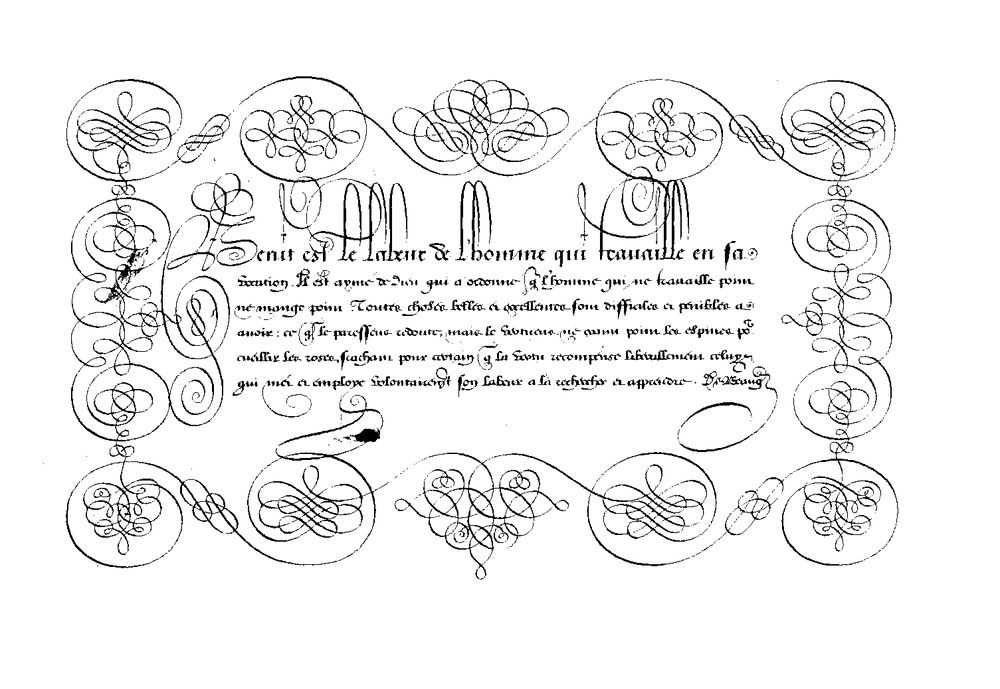 Benit est le labeur de l'homme qui travaille en sa
vocation. Il est ayme de Dieu qui a ordonne q l'homme qui ne travaille poin
ne mange poin Toutes choses belles et excellentes son difficiles et penibles a
avoir: ce q le paresseux redoute, mais le vertueux ne crain poin les espines po
cueillir les roses, sachant pour certain q la vertu recompense liberallement celuy
qui met et employe volontairemt son labeur a la rechercher et apprendre. De Beaug